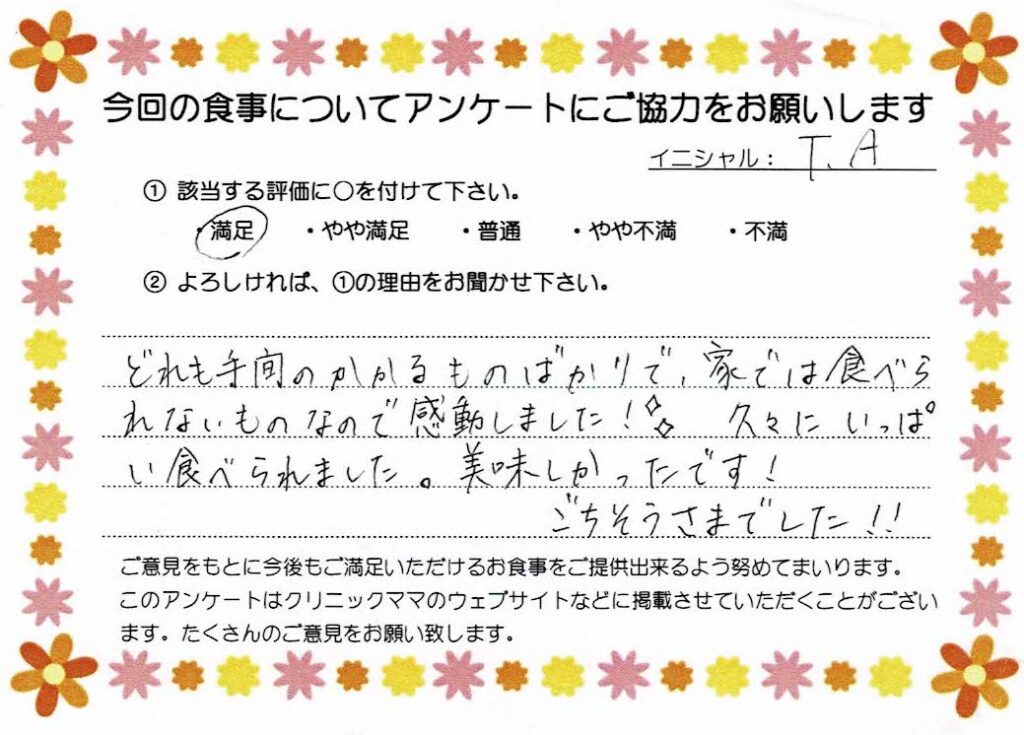 今回の食事についてアンケートにご協力をお願いします
イニシャル： T.A
① 該当する評価に○を付けて下さい。
・満足 ・やや満足 ・普通 ・やや不満 ・不満
② よろしければ、①の理由をお聞かせ下さい。
どれも手間のかかるものばかりで、家では食べら
れないものなので感動しました！ 久々にいっぱ
い食べられました。美味しかったです！
ごちそうさまでした!!
ご意見をもとに今後もご満足いただけるお食事をご提供出来るよう努めてまいります。
このアンケートはクリニックママのウェブサイトなどに掲載させていただくことがござい
ます。たくさんのご意見をお願い致します。